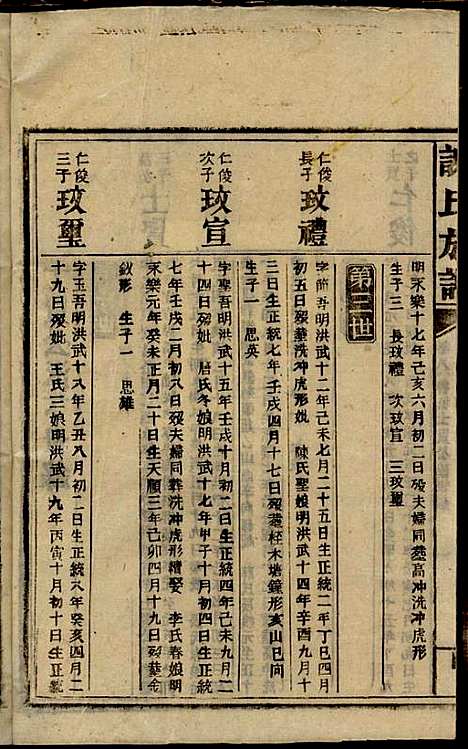 氏族譜
明永樂十七年己亥六月初二日歿夫婦同塟高冲洗冲虎形
生子三　長玟禮　次玟宣　三玟璽
第三世
仁俊長子
玟禮
字節吾明洪武十二年己未七月二十五日生正統二年丁巳四月
初五日歿塟洗冲虎形妣　陳氏聖娘明洪武十四年辛酉九月十
三日生正統七年壬戌四月十七日歿塟桎木塘鐘形亥山巳向
生子一　思英
仁俊次子
玟宣
字聖吾明洪武十五年壬戌十月初二日生正統四年己未九月二
十四日歿妣　唐氏冬娘明洪武十七年甲子十月初四日生正統
七年壬戌二月初八日歿夫婦同塟洗冲虎形續娶　李氏春娘明
永樂元年癸未正月二十日生天順三年己卯四月十九日歿塟金
釵形　生子一　思雄
仁俊三子
玟璽
字玉吾明洪武十八年乙丑八月初二日生正統八年癸亥四月二
十九日歿妣　王氏三娘明洪武十九年丙寅十月初十日生正統